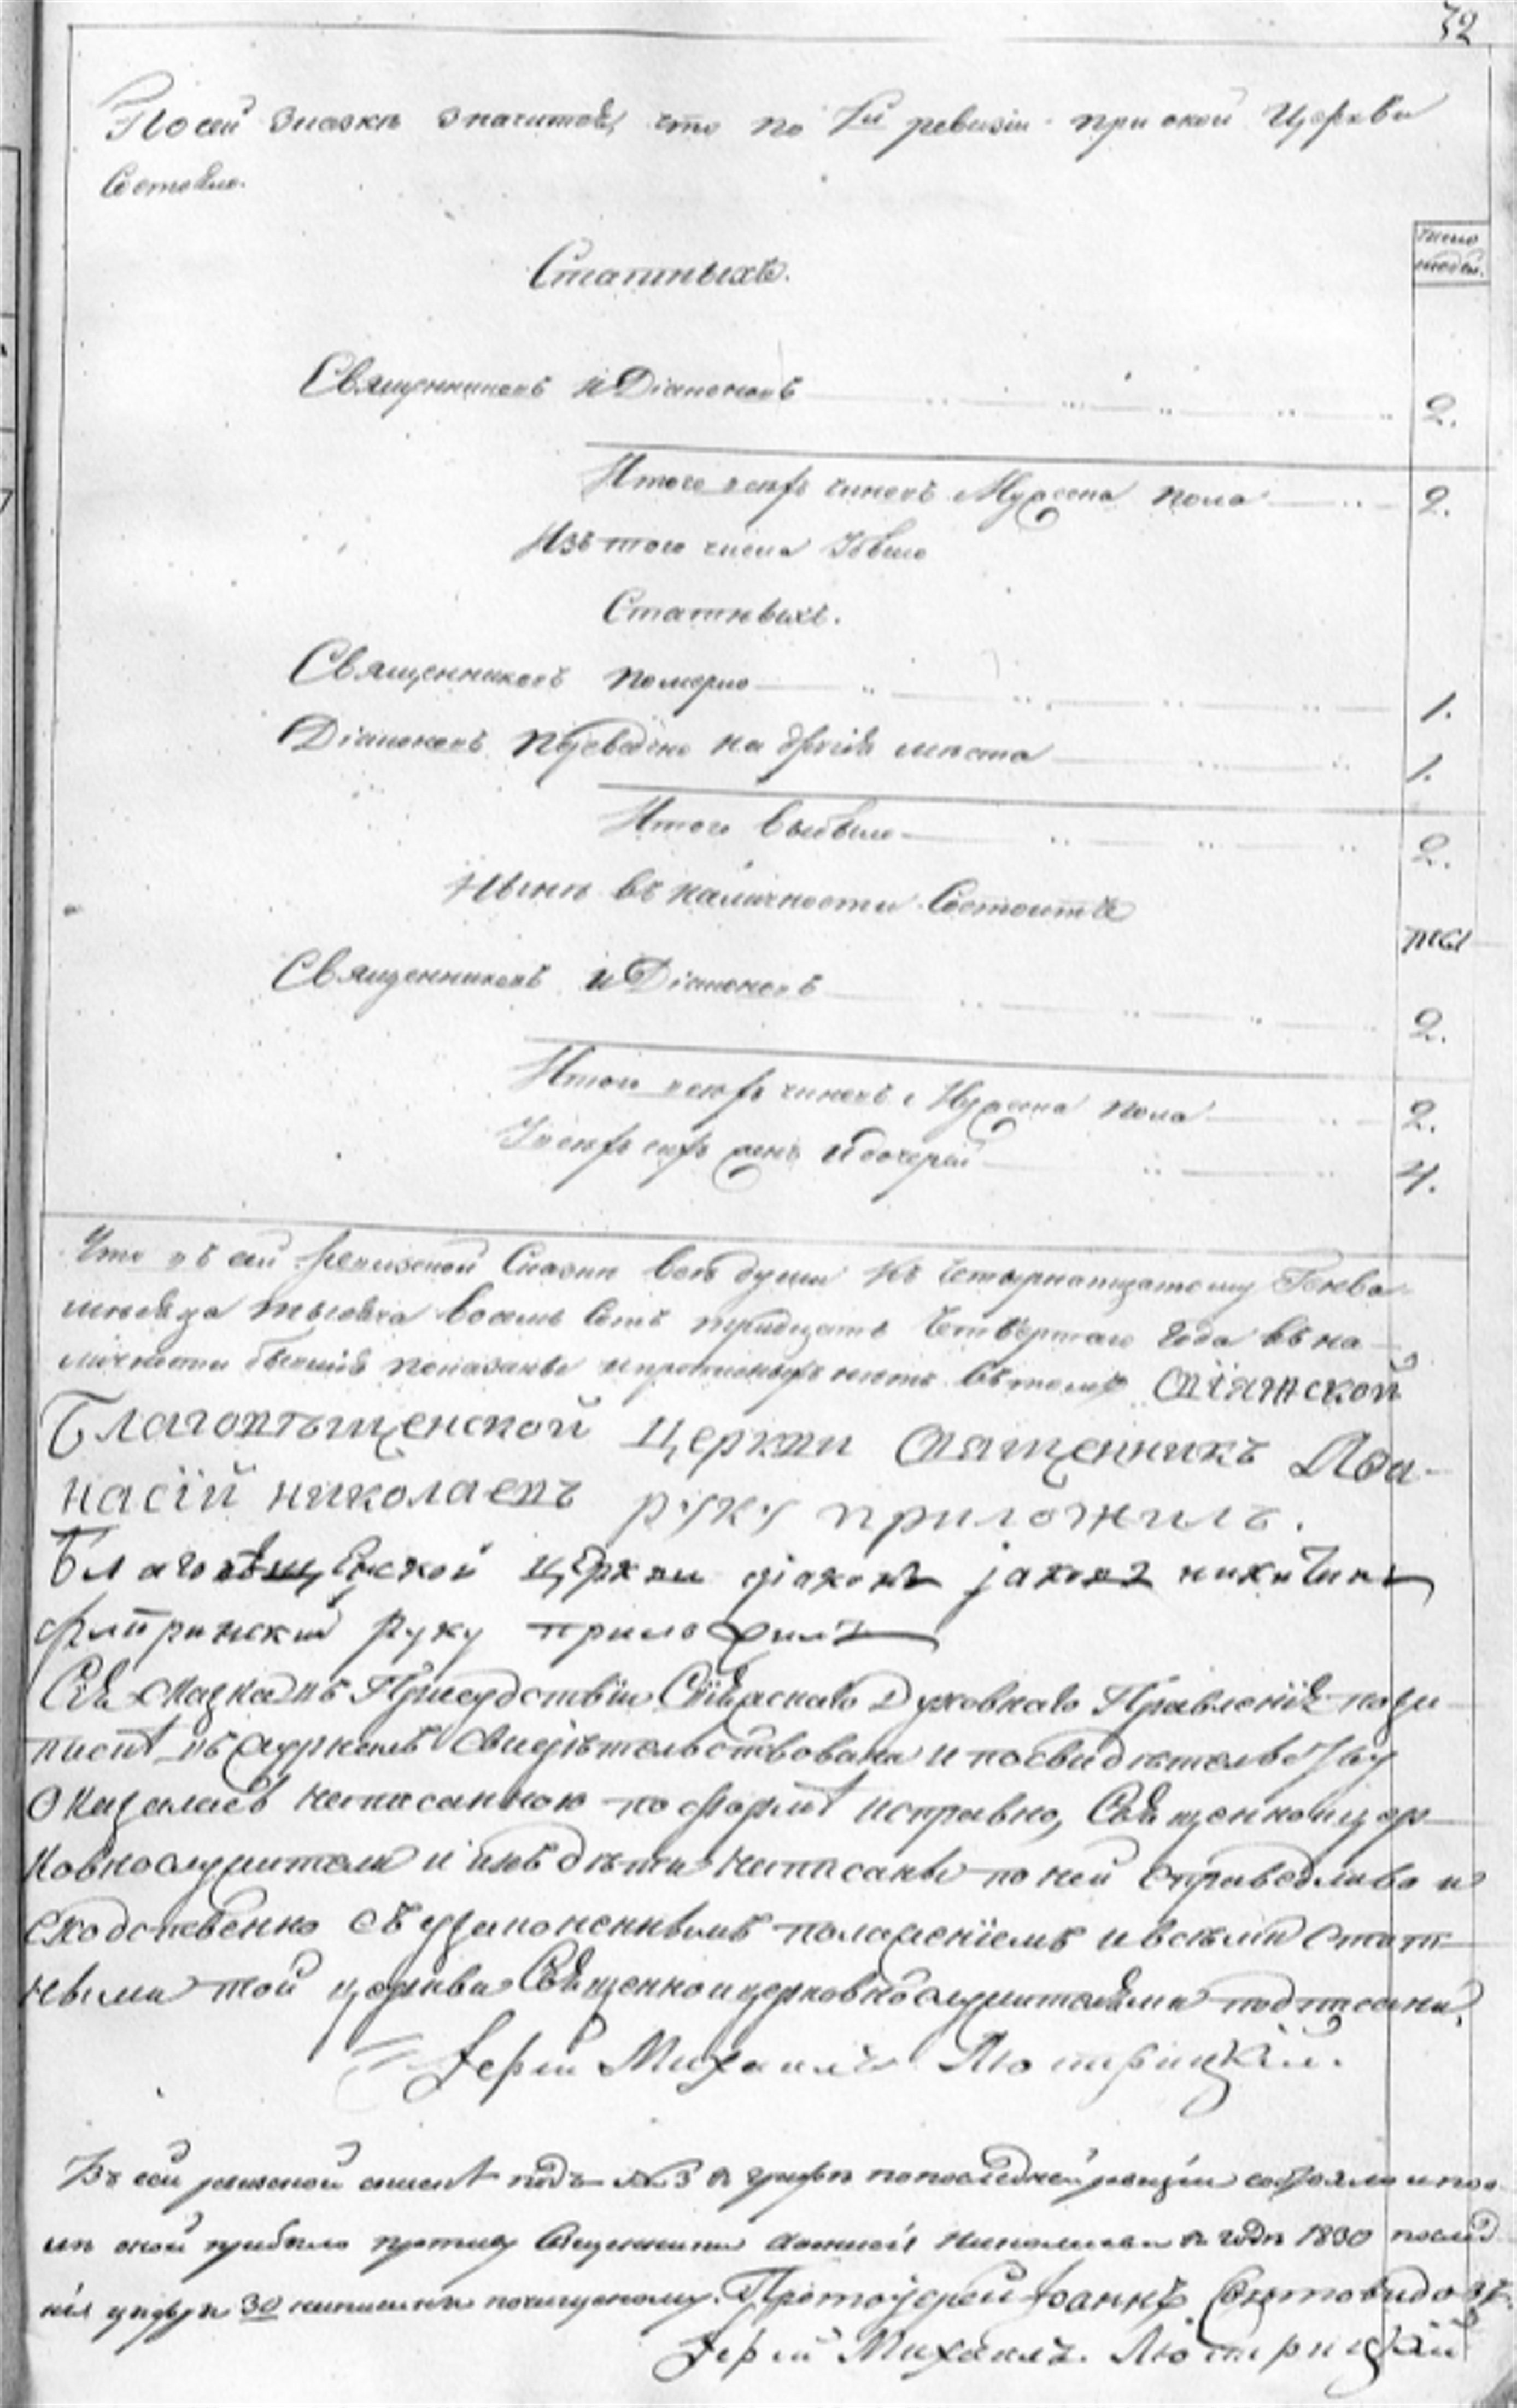 72
По сей сказкѣ значится, что по 7й ревизіи при оной Церкви
Состояло.
Число
людей.
Статныхъ.
Священниковъ и Діаконовъ 2.
Итого всѣхъ чиновъ Мужеска пола 2.
Изъ того числа Убыло
Статныхъ.
Священниковъ померло 1.
Діаконовъ переведено на другія мѣста 1.
Итого выбыло 2.
Нынѣ въ наличности Состоитъ
Священниковъ и Діаконовъ 2.
Итого всѣхъ чиновъ Мужеска пола 2.
У всѣхъ сихъ женъ и дочерей 4.
Что въ сей ревизской Сказки всѣ души къ четырнатцатому Генва
мѣсяца тысяча восемь сотъ тридцать четвертаго года въ на
личности бывшія показаны и прописныхъ нѣтъ въ томъ свіяжской
Благовѣщенской церкви священникъ Аѳа-
насій николаевъ руку приложилъ.
Благовѣщенской церкви діаконъ іаковъ никитинъ
руку приложилъ
Сія сказка въ Присудствіи Свіяжскаго Духовнаго Правленія
свидѣтельствована и по свидѣтельству
оказалась написанною по формѣ исправно, Священноцер
ковнослужители и ихъ дѣти написаны по ней справедливо и
сходственно съ узаконеннымъ положеніемъ и всѣми статт
ными той церкви Священноцерковнослужителями подписана.
Іерей Михаилъ Люстрицкій.
Въ сей ревизской сказкѣ подъ № 3 въ графѣ по последней ревизіи состояло и пос
лѣ оной прибыло противу Священника Аѳанасія Николаева въ годѣ 1830 послѣд
нія цыфры 30 написаны по чищеному. Протоіерей Іоаннъ Святовидовъ
Іерей Михаилъ Люстрицкій